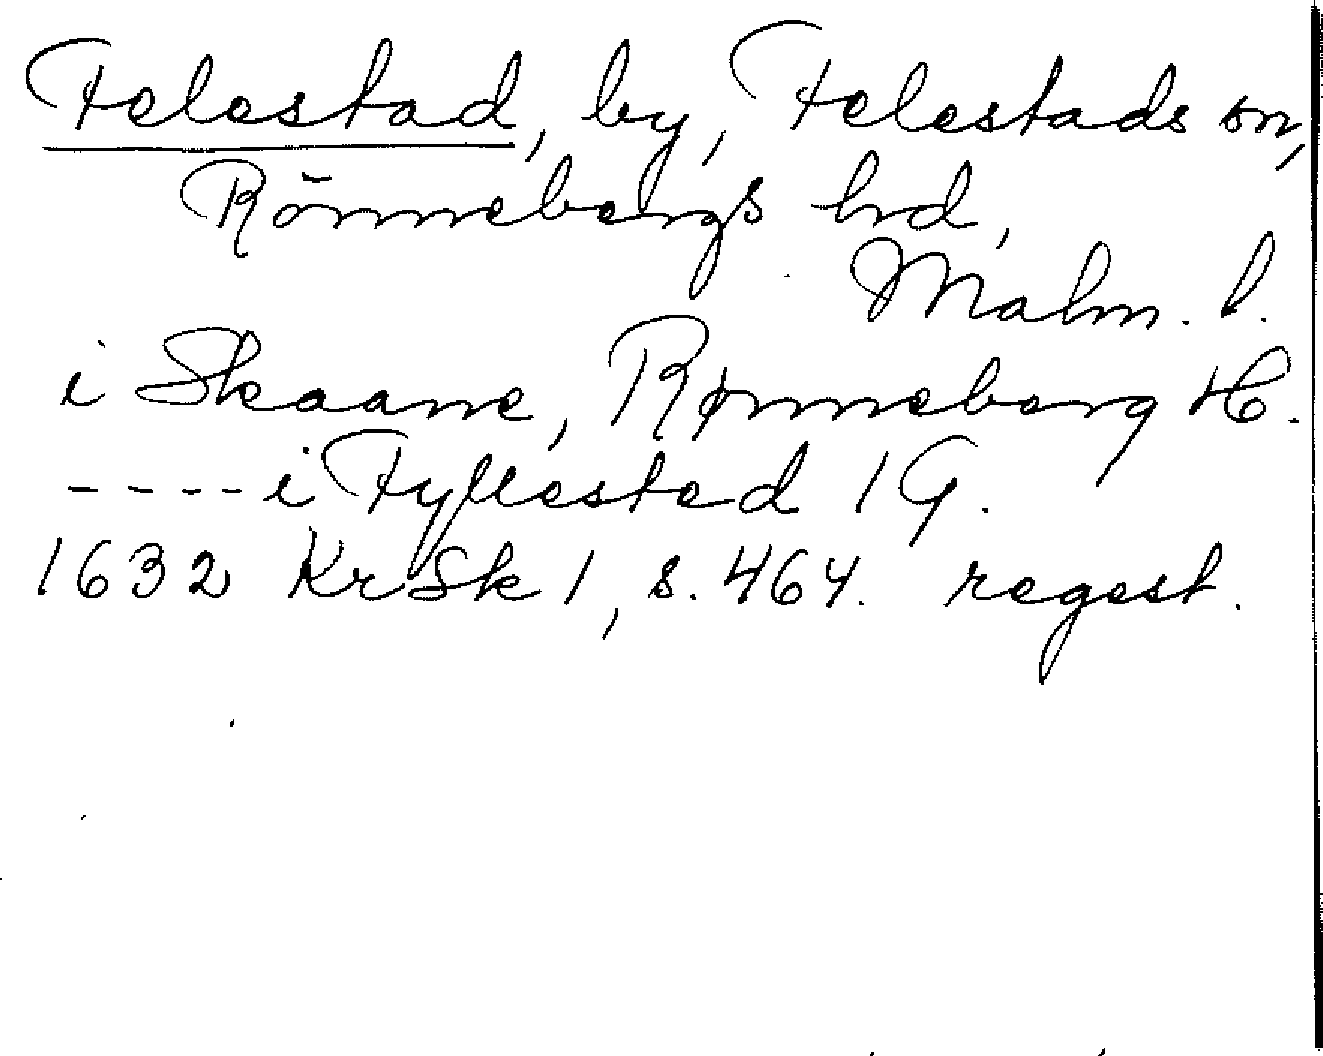 Felestad, by, Felestads sn,
Rönnebergs hd,
Malm. l.
i Skaane, Rønneberg H.
---- i Fyllested 1 G.
1632 KrSk 1, s. 464. regest.